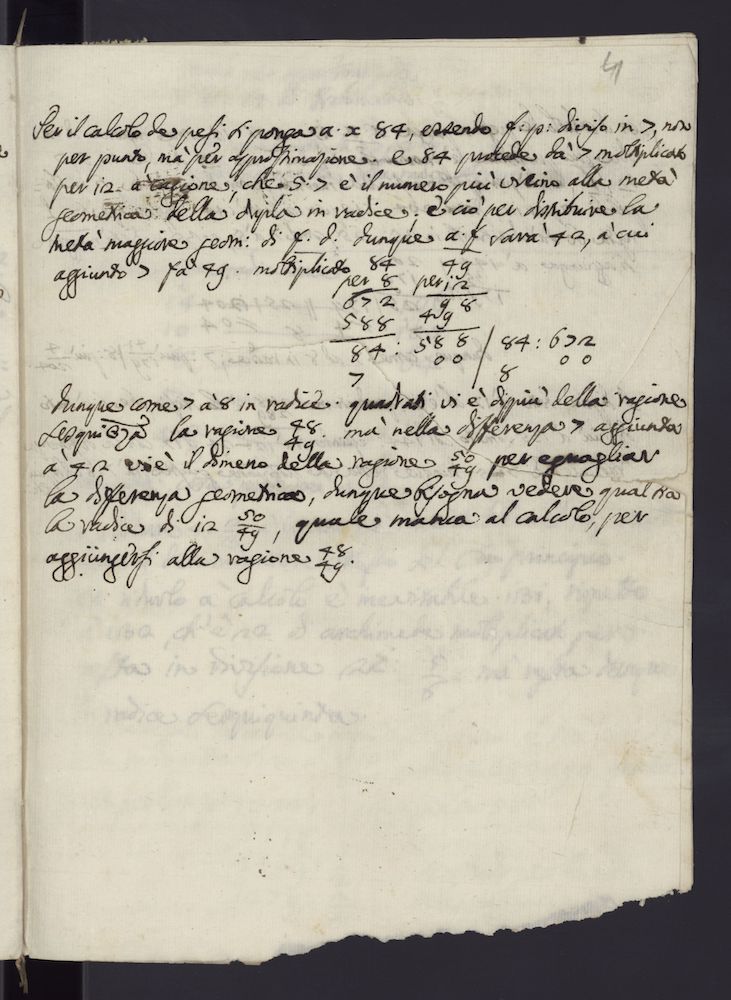 4
Per il calcolo de pesi si ponga a · x 84, essendo f : p : diviso in 7, non
per punto, mà per approssimazione · e 84 procede dà 7 moltiplicato
per 12 à cagione, che 5 · 7 è il numero più vicino alla metà
geometrica della dupla in radice · e ciò per distribuire la
metà maggiore geom: di f. d. dunque a · f sarà 42, à cui
aggiunto 7 fà 49 · moltiplicato 84 49
per 8 per 12
672 98
588 49
84 : 588 / 84 : 672
7 00 8 00
dunque come 7 à 8 in radice · quadrati vi è di più della ragione
la ragione 48/49 · mà nella differenza 7 aggiunta
à 42 vi è il dimeno della ragione 50/49 per eguagliar
la differenza geometrica, dunque bisogna vedere qual sia
la radice di 12 50/49, quale manca al calcolo, per
aggiungersi alla ragione 48/49.